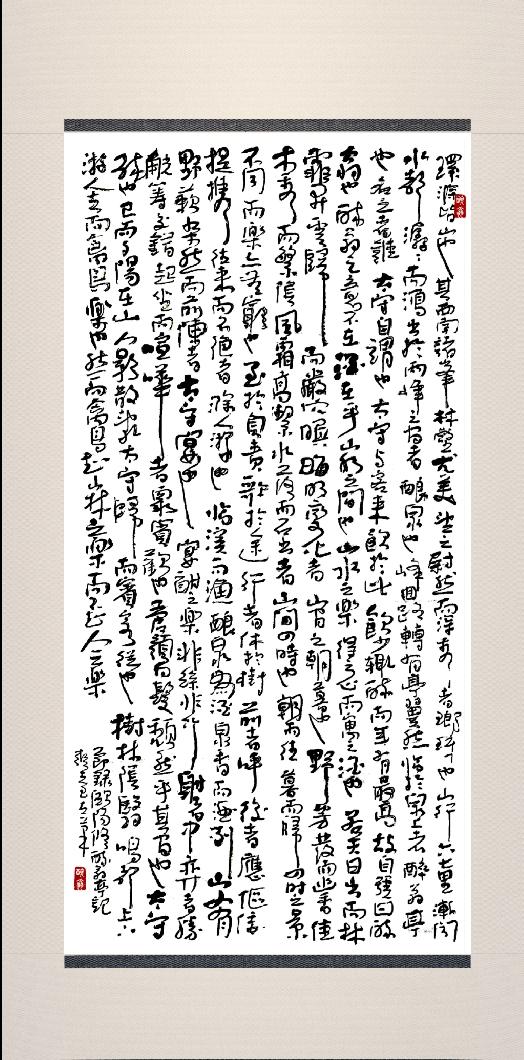 環滁皆山也其西南諸峰林壑尤美望之蔚然而深秀者瑯琊也山行六七里漸聞
水聲潺潺而瀉出於兩峰之間者釀泉也峰回路轉有亭翼然臨於泉上者醉翁亭
也名之者誰太守自謂也太守与客來飲於此飲少輒醉而年又最高故自號曰醉
翁也醉翁之意不在酒在乎山水之間也山水之樂得之心而寓之酒也若夫日出而林
霏開雲歸而巖穴暝晦明變化者山間之朝暮也野芳發而幽香佳
木秀而繁陰風霜高潔水落而石出者山間四時也朝而往暮而歸四時之景
不同而樂亦無窮也至於負者歌於途行者休於樹前者呼後者應傴僂
提攜往來而不絕者滁人遊也臨溪而漁釀泉為酒泉香而酒洌山肴
野蔌雜然而前陳者太守宴也宴酣之樂非絲非竹射者中弈者勝
觥籌交錯起坐而喧嘩者衆賓歡也蒼顏白髮頹然乎其間者太守
醉也已而夕陽在山人影散亂太守歸而賓客從也樹林陰翳鳴聲上下
遊人去而禽鳥樂也然而禽鳥知山林之樂而不知人之樂
節錄歐陽修醉翁亭記